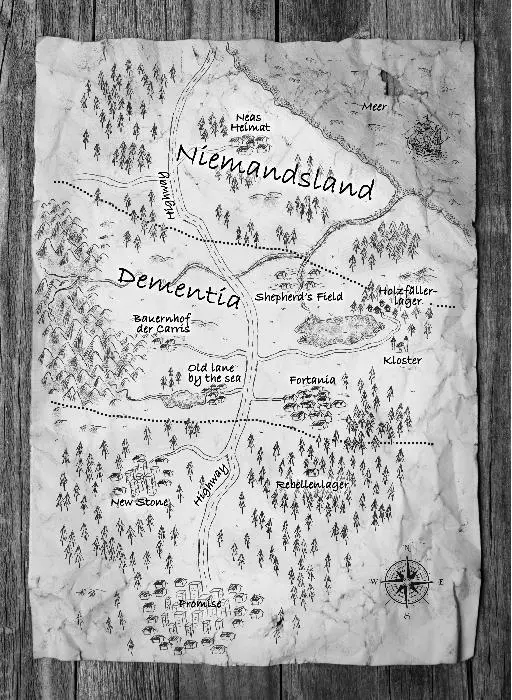 Meer
Neas
Heimat
Niemandsland
Highway
Dementia
Shepherd's Field
Holzfäller-
lager
Bauernhof
der Carris
Kloster
Old lane
by the sea
Fortania
Highway
Rebellenlager
New Stone
Promise
N
W
E
S